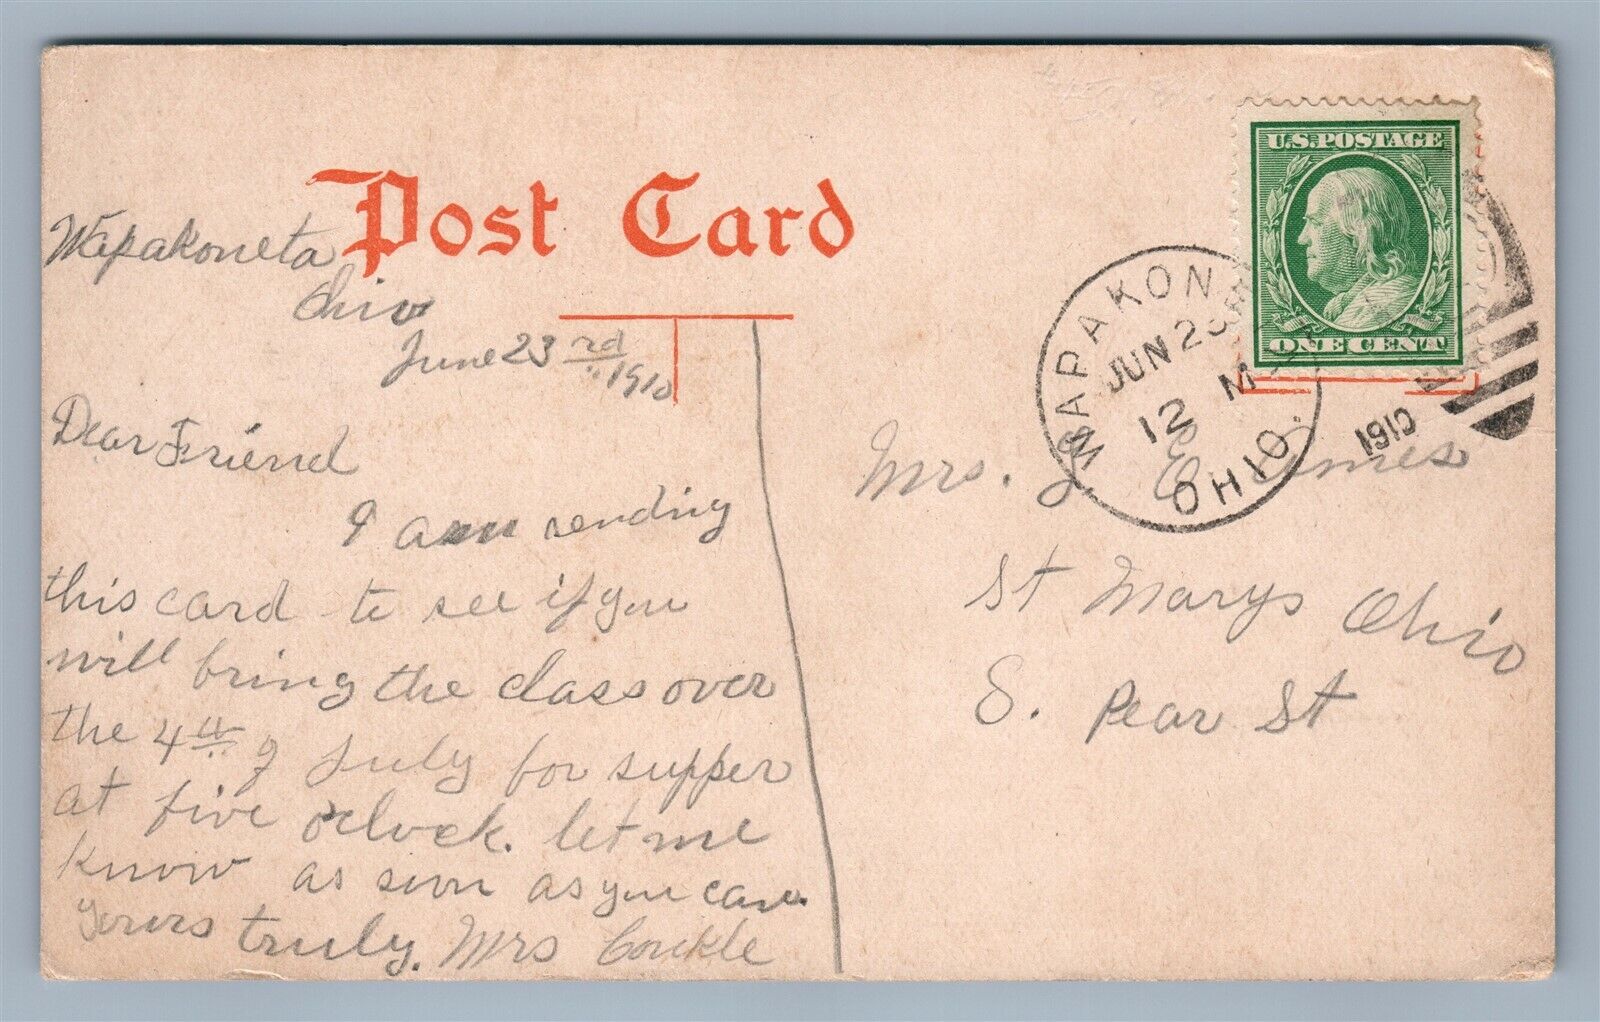 Post Card
Wapakoneta
Ohio
June 23rd
1910
Dear Friend
I am sending
this card to see if you
will bring the class over
the 4th of July for supper
at five o'clock. let me
know as soon as you can.
Yours truly. Mrs Conkle
U.S. POSTAGE
ONE CENT
WAPAKONETA
JUN 23
12 M
1910
OHIO.
Mrs. J. E.
St Marys Ohio
S. Pear St